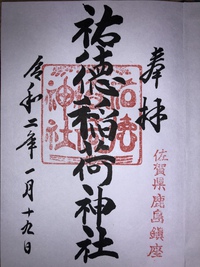 奉拝
佐賀県鹿島鎮座
祐徳稲荷神社
祐徳
神社
令和二年一月十九日